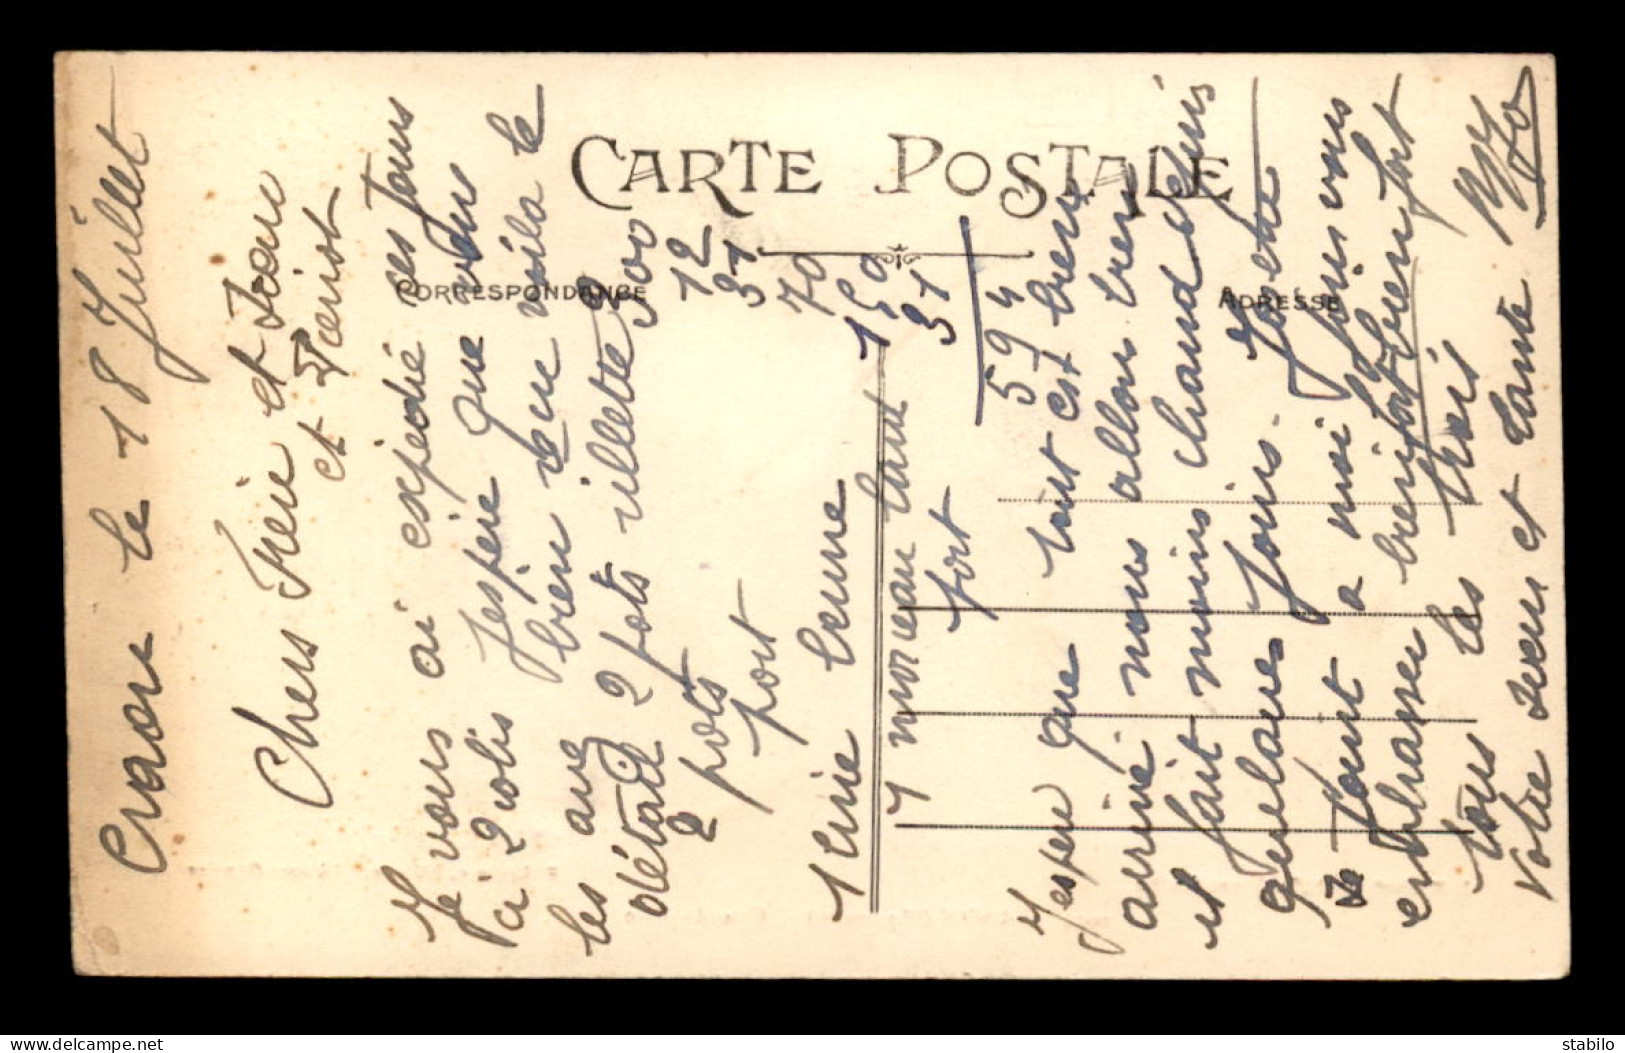 CARTE POSTALE
CORRESPONDANCE
ADRESSE
Craon le 18 Juillet
Chers Frère et Soeur
et Denise
Je vous ai expédié ces jours
ci 2 colis J'espère que vous
les avez bien reçu voila le
détail 2 pots rillette 300
2 pots 12
port 31
1 terrine 70
1 morceau lard 150
port 31
594
J'espère que tout est bien
arrivé nous allons bien
et fait moins chaud depuis
quelques jours. Josette
se joint a moi pour vous
embrasser bien fort bien fort
tous les trois
Votre soeur et tante
www.delcampe.net
stabilo